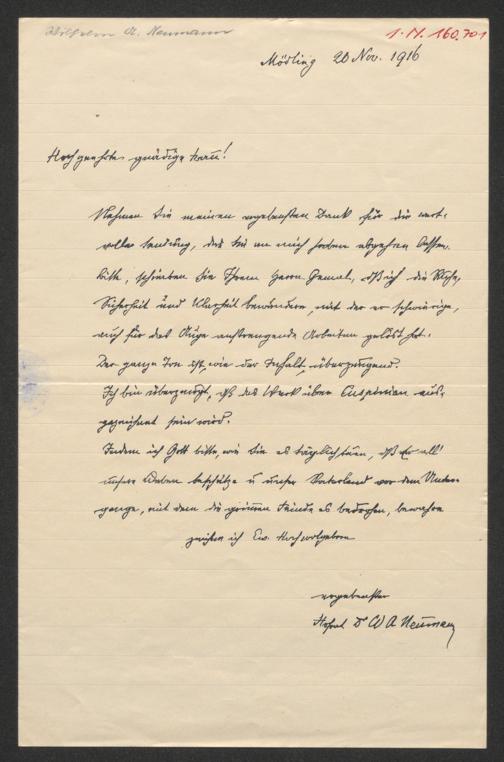 Wilhelm A. Neumann
I.N. 160.701
Mödling 20 Nov. 1916
Hochgeehrte gnädige Frau!
Nehmen Sie meinen ergebensten Dank für die wert-
volle Sendung, das Sie an mich haben abgehen lassen.
Bitte, schreiben Sie Ihrem Herrn Gemal, dß ich die Ruhe,
Sicherheit und Klarheit bewundere, mit der er schwierige,
auch für das Auge anstrengende Arbeiten gelöst hat.
Der ganze Ton ist, wie der Inhalt, überzeugend.
Ich bin überzeugt, dß das Werk über Cuspinian aus-
gezeichnet sein wird.
Indem ich Gott bitte, wie Sie es täglich tun, dß Er all'
unsere Lieben beschütze u unser Vaterland vor dem Unter-
gange, mit dem die grimmen Feinde es bedrohen, bewahre
zeichne ich Ew. Hochwolgeboren
ergebenster
Hofrat Dr W A Neumann